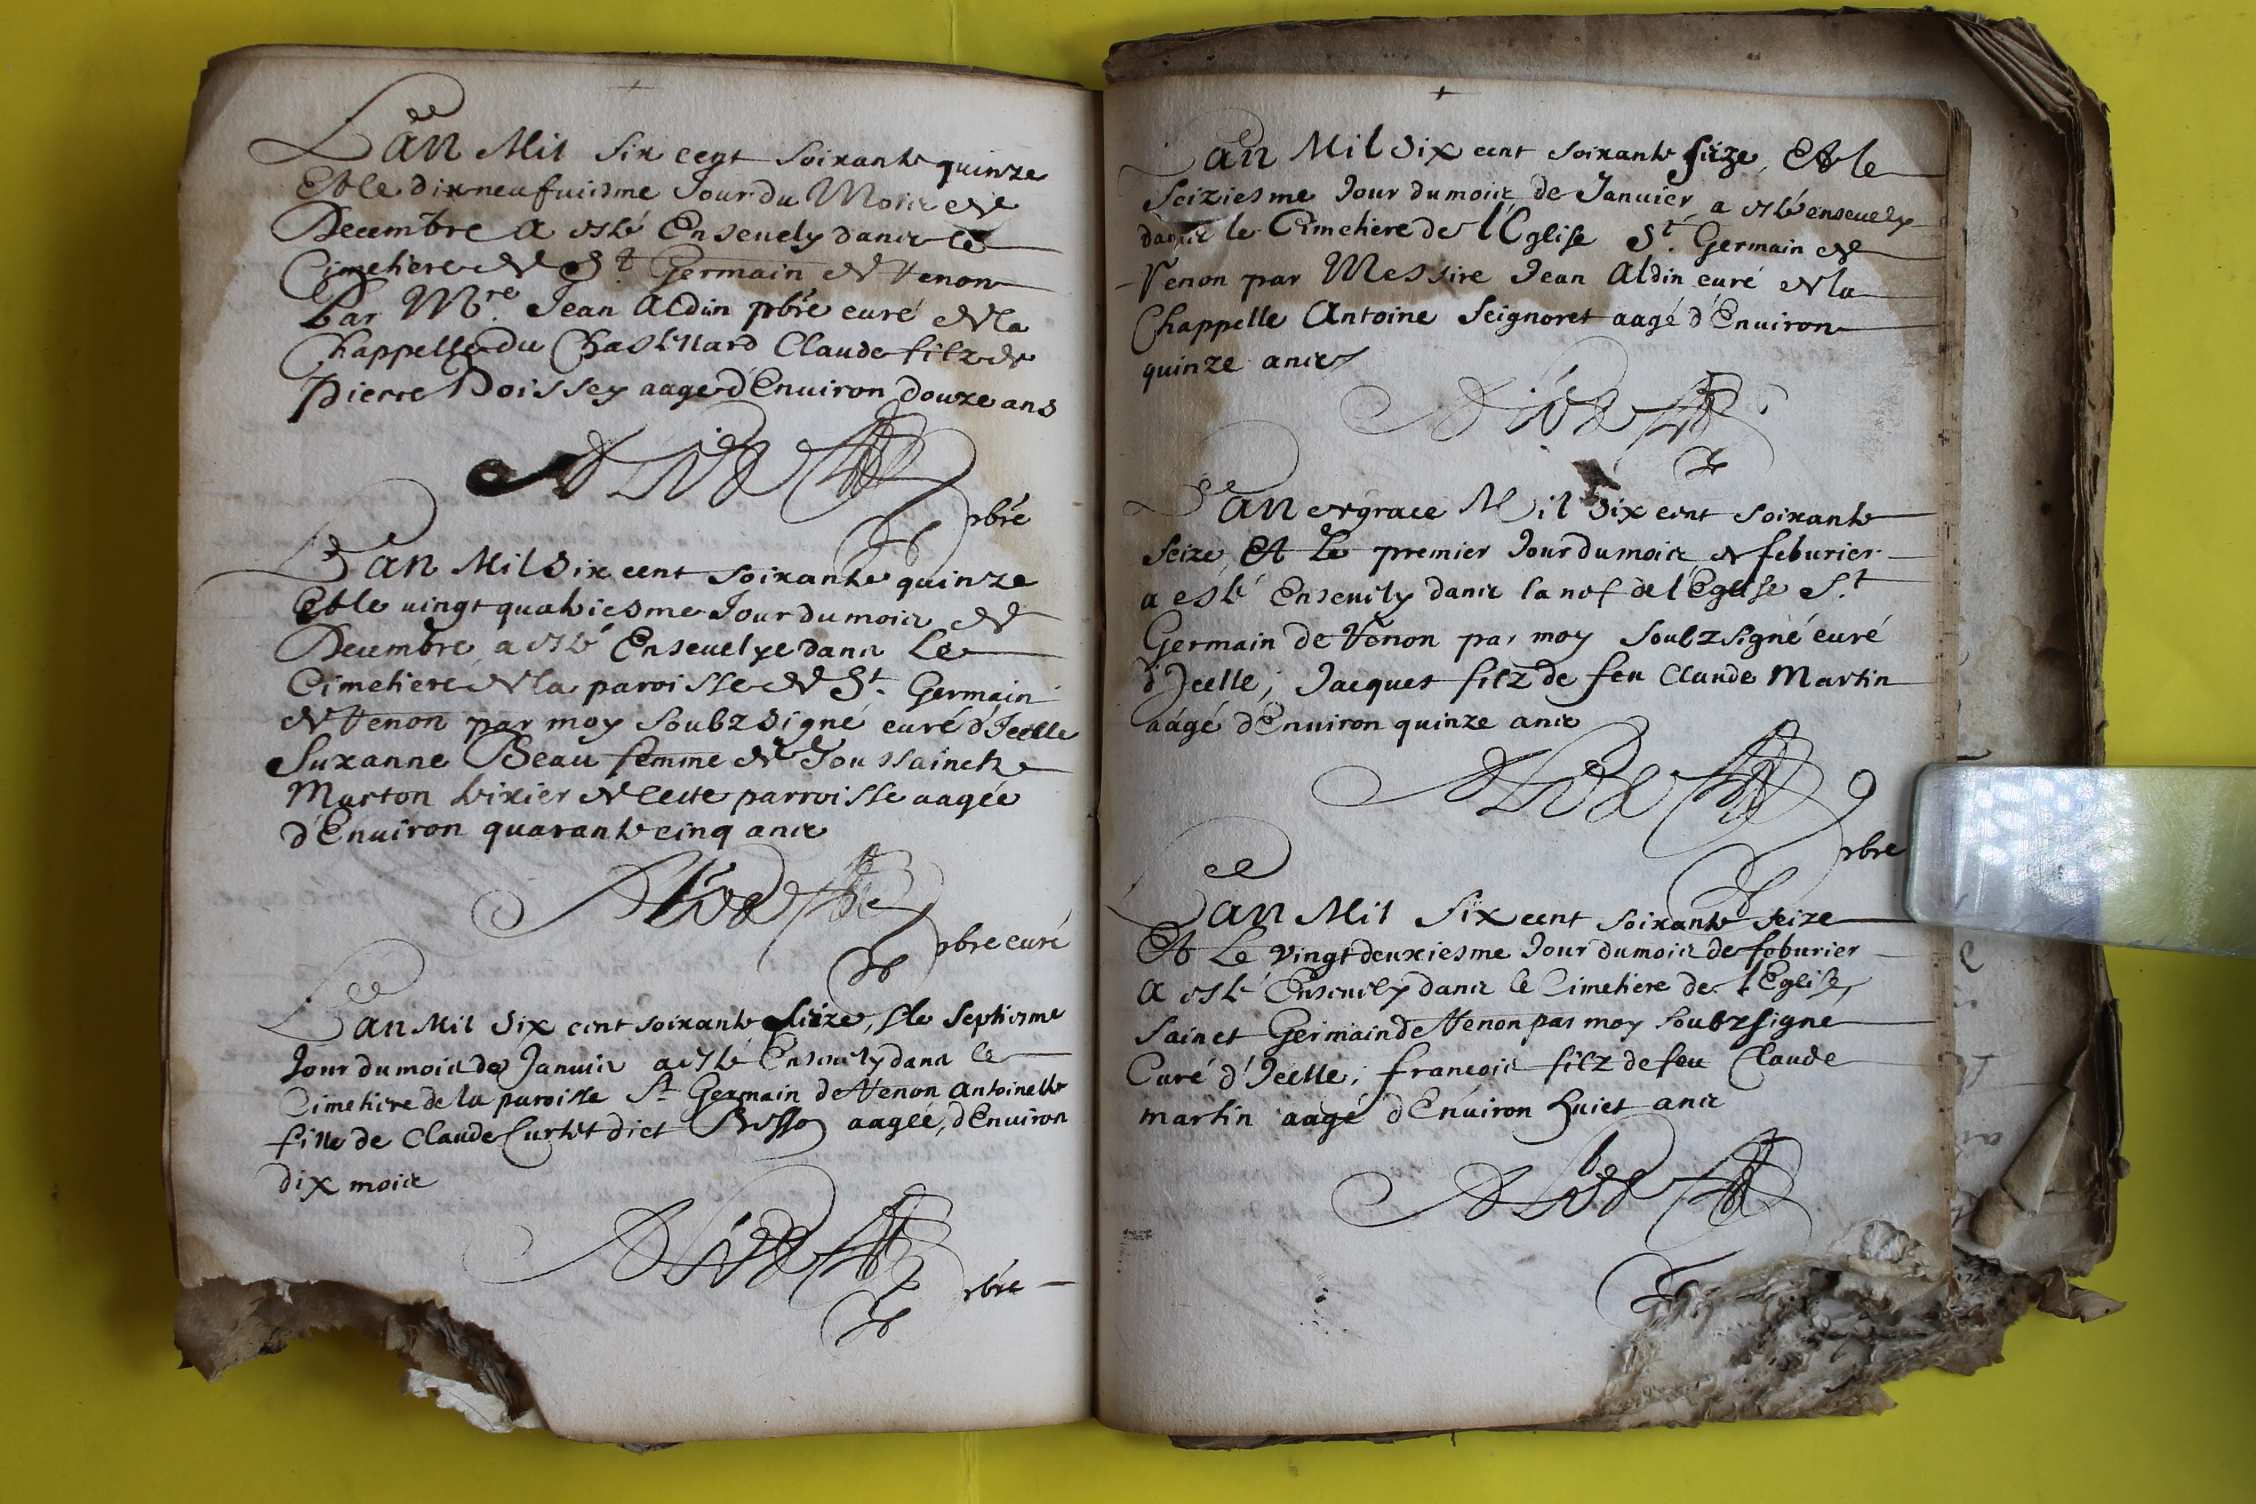 L'an Mil six cent soixante quinze
Et le dixneufuiesme Jour du Mois de
Decembre a esté Enseuely dans le
Cimetiere de St. Germain de Venon
Par Mre. Jean Aldin pbre curé de la
Chappelle du Chastellard Claude filz de
Pierre Poissey aagé d'Enuiron douze ans
pbre
L'an Mil Six cent soixante quinze
Et le uingt quatriesme Jour du mois de
Decembre a esté Enseuelye dans Le
Cimetiere de la paroisse de St. Germain
de Venon par moy soubzsigné curé d'Icelle
Suzanne Beau femme de Toussainct
Marton tixier de cette parroisse aagée
d'Enuiron quarante cinq ans
pbre curé
L'an Mil Six cent soixante seize, & le septiesme
Jour du mois de Januier a esté Enseuely dans le
Cimetiere de la paroisse St. Germain de Venon Antoinette
fille de Claude Curtet dict aagée, d'Enuiron
dix mois
pbre
L'an Mil Six cent soixante seize, Et le
seiziesme Jour du mois de Januier a esté enseuely
dans le Cimetiere de l'Eglise St. Germain de
Venon par Messire Jean Aldin curé de la
Chappelle Antoine Seignoret aagé d'Enuiron
quinze ans
L'an de grace Mil Six cent soixante
seize, Et Le premier Jour du mois de feburier
a esté Enseuely dans la nef de l'Eglise St.
Germain de Venon par moy soubzsigné curé
d'Icelle; Jacques filz de feu Claude Martin
aagé d'Enuiron quinze ans
pbre
L'an Mil Six cent soixante seize
Et Le vingt deuxiesme Jour du mois de feburier
a esté Enseuely dans le Cimetiere de l'Eglise
sainct Germain de Venon par moy soubzsigne
Curé d'Icelle; francois filz de feu Claude
martin aagé d'Enuiron huict ans